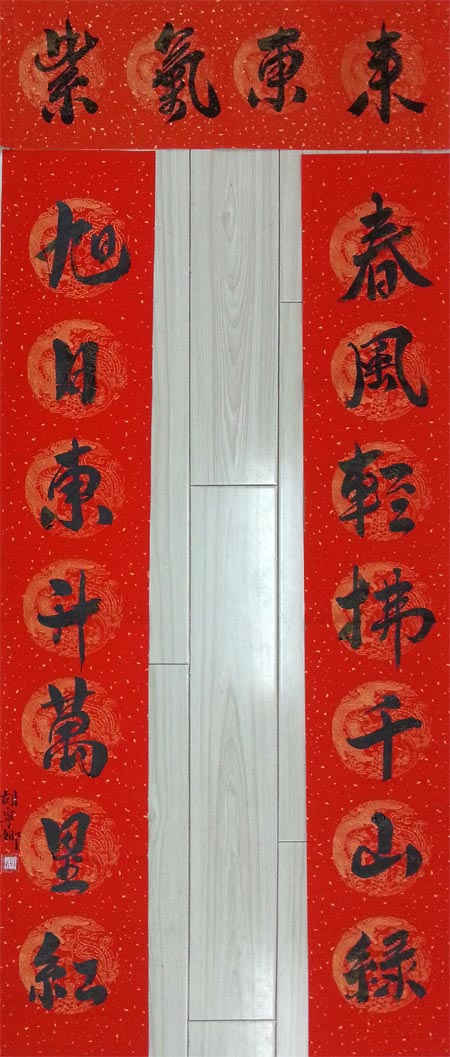 紫氣東来
春風輕拂千山緑
旭日東升萬里紅